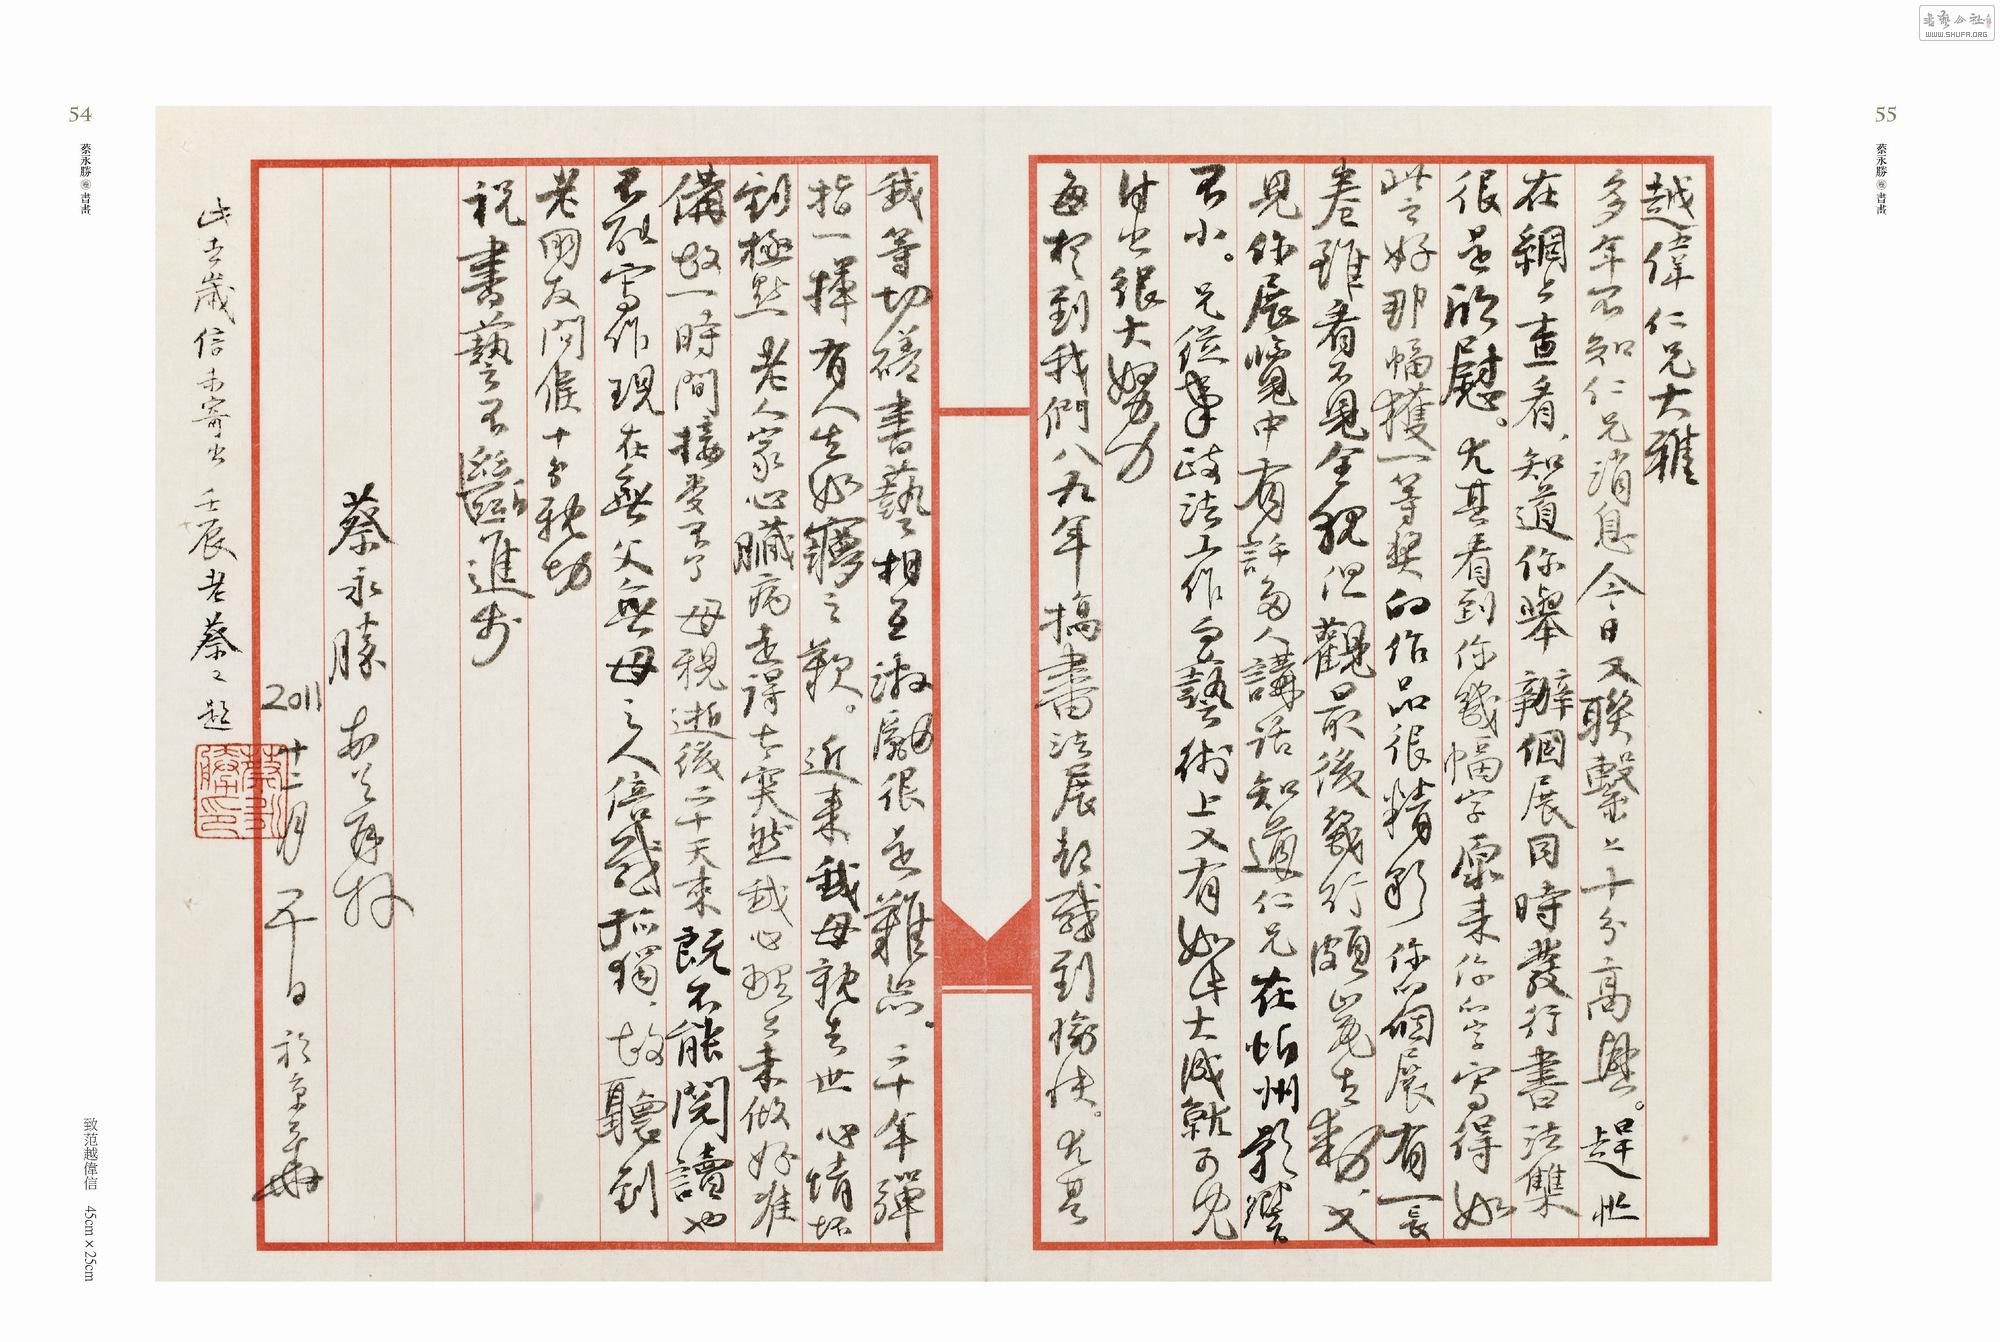 越偉仁兄大雅
多年不知仁兄消息今日又聯繫上十分高興。趕忙
在網上查看、知道你舉辦個展同時發行書法集
很是欣慰。尤其看到你幾幅字原來你的字寫得如
此之好那幅獲一等獎的作品很精彩你的個展有一長
卷雖看不見全貌但觀最後幾行頗為生動又
見你展覽中有許多人講話知道仁兄在忻州影響
不小。兄從事政法工作書藝術上又有如此大成就可見
付出很大努力
每想到我們八九年搞書法展都感到愉快。尤其
我等切磋書藝相互激勵很是難忘。二十年彈
指一揮有人生如夢之歎。近來我母親去世心情坏
到極點老人家心臟病走得太突然我心理上未做好准
備故一時間接受不了母親逝後二十天來既不能閱讀也
不能寫作現在無父無母之人倍感孤獨、故聽到
老朋友問候十分親切
祝書藝不斷進步
蔡永勝
2011十二月 日於京華
此去歲信未寄出 壬辰老蔡又題
蔡永勝印
54
蔡永勝 卷 書畫
致范越偉信 45cm×25cm
55
蔡永勝 卷 書畫
书艺公社
WWW.SHUFA.ORG